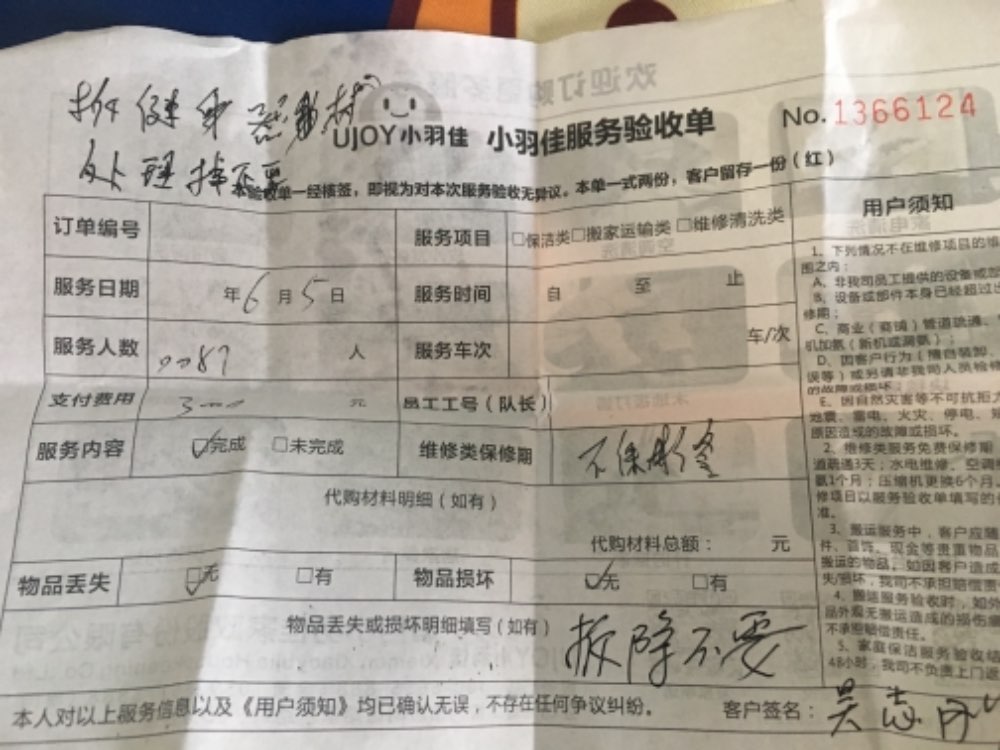 拆健身器
处理掉不要
UJOY小羽佳 小羽佳服务验收单 No.1366124
本验收单一经核签，即视为对本次服务验收无异议。本单一式两份，客户留存一份（红）
订单编号 服务项目 □保洁类□搬家运输类 □维修清洗类
服务日期 年6月5日 服务时间 自 至 止
服务人数 人 服务车次 车/次
支付费用 元 员工工号（队长）
服务内容 ☑完成 □未完成 维修类保修期
代购材料明细（如有）
代购材料总额： 元
物品丢失 ☑无 □有 物品损坏 ☑无 □有
物品丢失或损坏明细填写（如有） 拆除不要
本人对以上服务信息以及《用户须知》均已确认无误，不存在任何争议纠纷。 客户签名：吴志
用户须知
1、下列情况不在维修项目的维
围之内：
A、非我司员工提供的设备或
B、设备或部件本身已经超过
修期；
C、商业（商铺）管道疏通、
机加氨（新机或漏氨）；
D、因客户行为（擅自装卸、
误等）或另请非我司人员检修
的故障或损坏
E、因自然灾害等不可抗拒
地震、雷电、火灾、停电、
原因造成的故障或损坏。
2、维修类服务免费保修期
道疏通3天；水电维修、空调
氨1个月；压缩机更换6个月
修项目以服务验收单填写的
准。
3、搬运服务中，客户应随
件、首饰、现金等贵重物品
搬运的物品，如因客户造成
失/损坏，我司不承担赔偿责
4、搬运服务验收时，如外
品外观无搬运造成的损伤
不承担赔偿责任。
5、家庭保洁服务验收结
48小时，我司不负责上门返